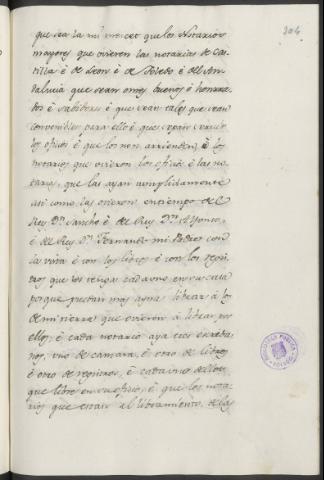 304
que sea la mi mercet que los Notarios
mayores que ovieren las notarias de Cas
tilla é de Leon é de Toledo é del An
dalucia que sean omes buenos é honrra
dos é sabidores é que sean tales que sean
convenibles para ello é que sepan
los oficios é que los non arrienden, é los
notarios que ovieron los oficios é las no
tarias, que las ayan complidamente
asi como las ovieron en tiempo del
Rey Dn. Sancho é del Rey Dn. Alfonso,
é del Rey Dn. Fernando mi Padre con
la vista é con los libros é con los regis
tros que los tenga cada uno en su casa
porque puedan mas ayna librar á los
de mi tierra que ovieren á librar por
ellos, é cada notario aya tres escriba
nos, uno de camara, é otro de libros
é otro de registros, é cada uno dellos
que libre en su oficio, é que los nota
rios que esten al libramiento de las
BIBLIOTECA PUBLICA
TOLEDO